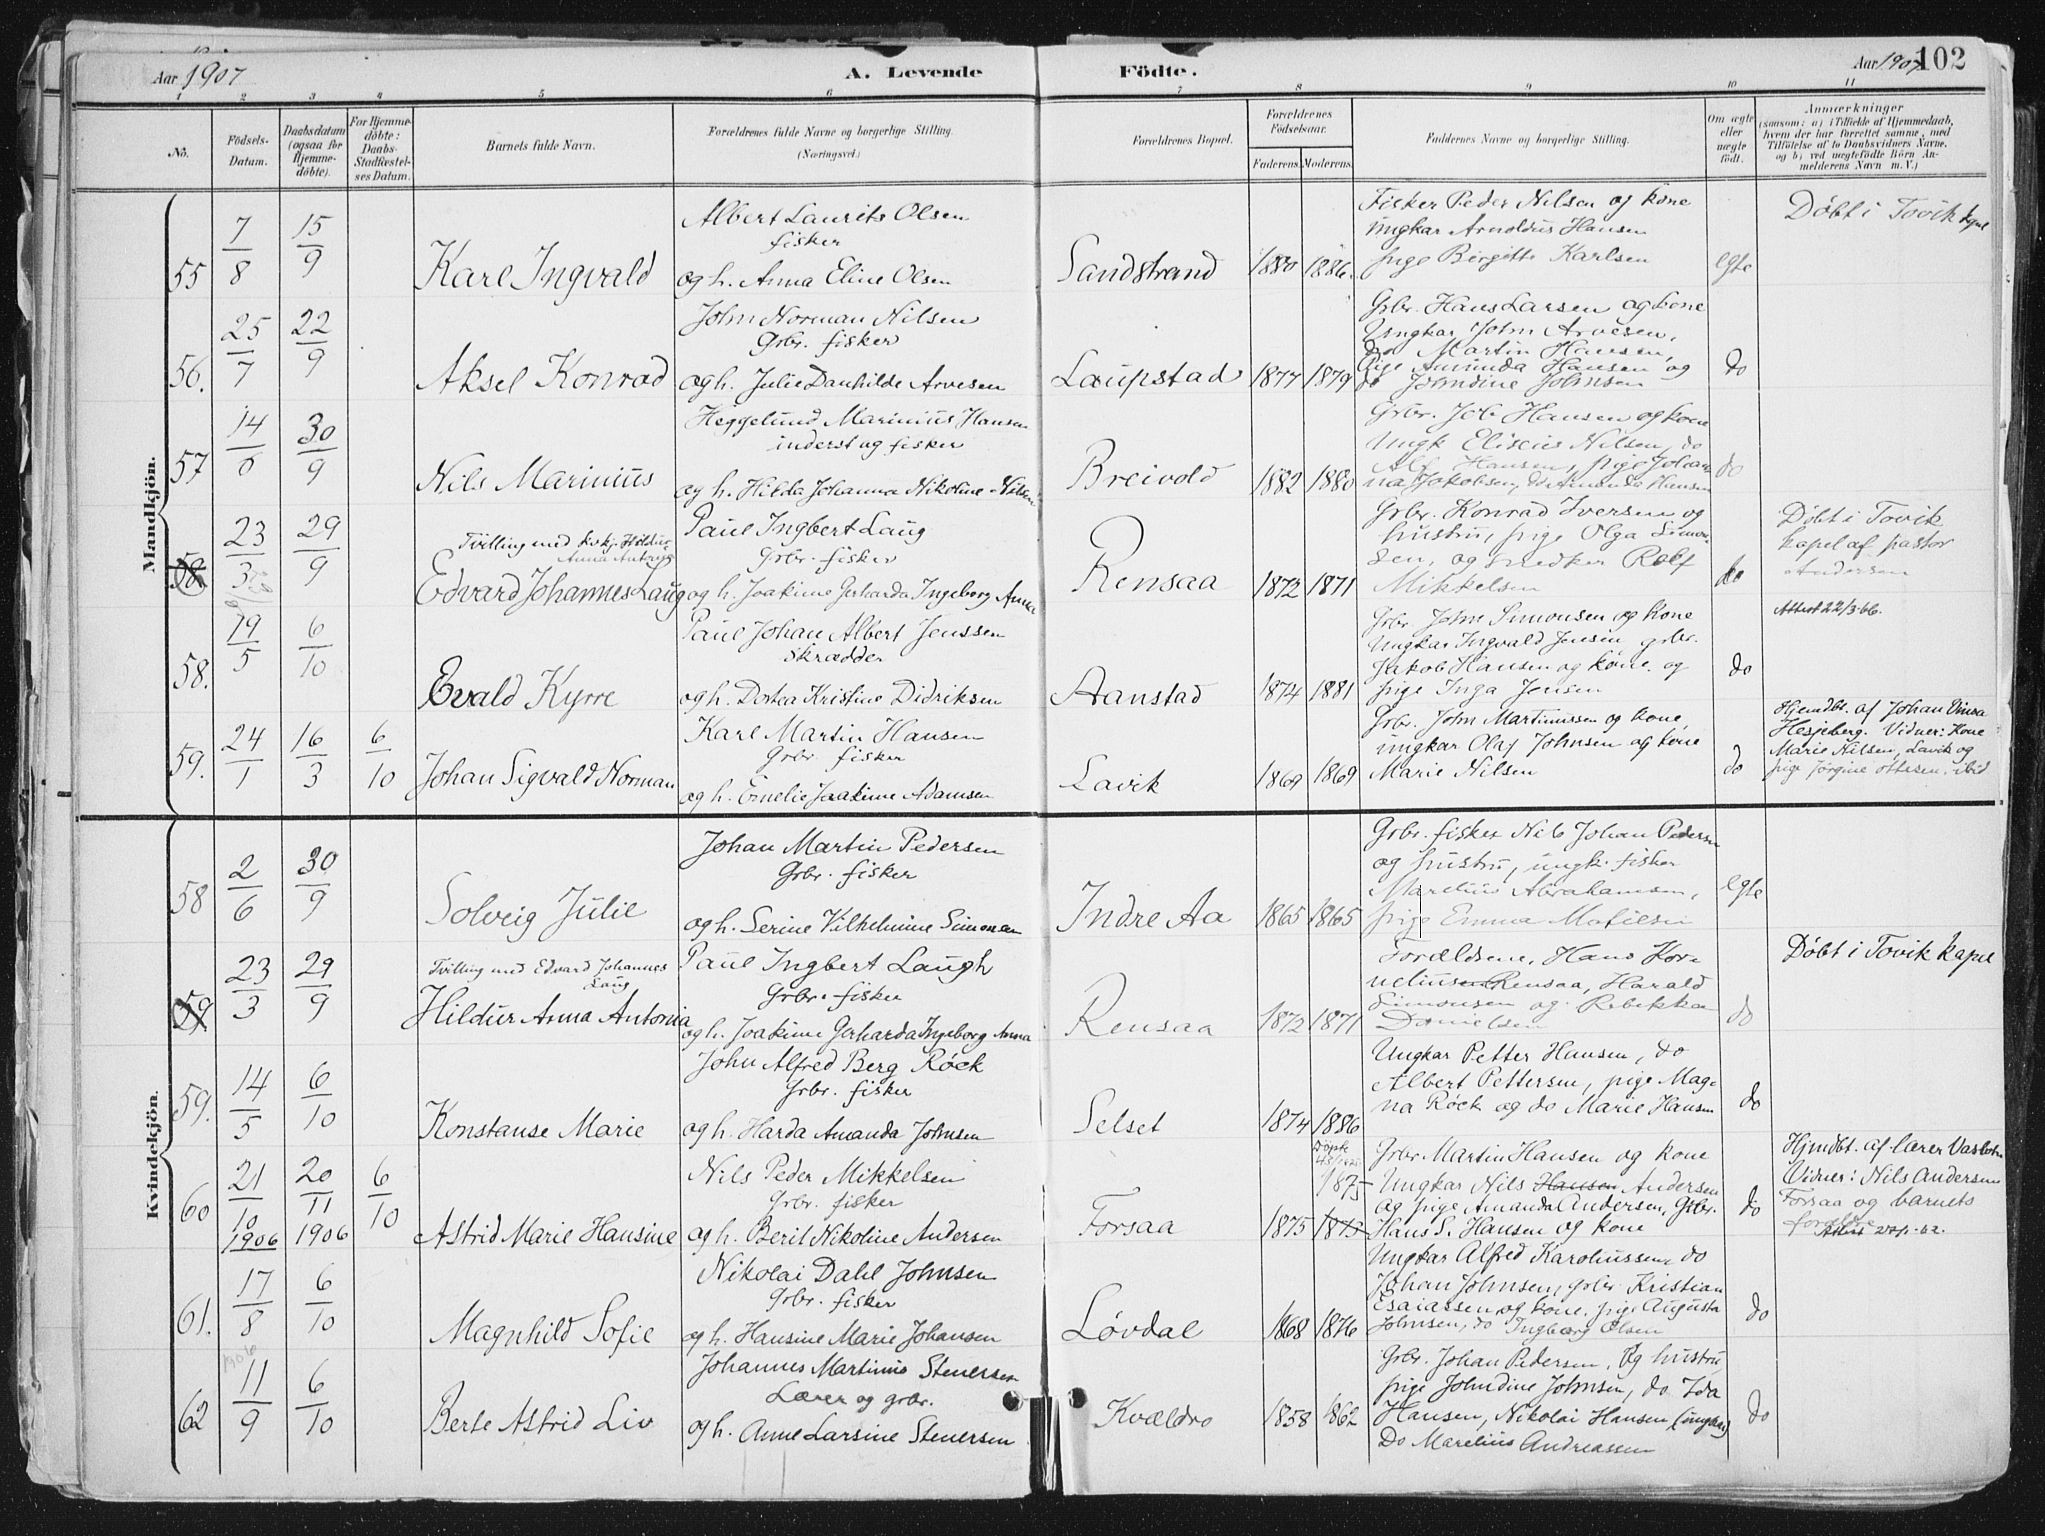 Aar 1907
A. Levende Födte.
Aar 1907 102
1 2 3 4 5 6 7 8 9 10 11
No.
Födsels-
Datum.
Daabsdatum
(ogsaa for
Hjemme-
döbte).
For Hjemme-
döbte:
Daabs-
Stadfæstel-
ses Datum.
Barnets fulde Navn.
Forældrenes fulde Navne og borgerlige Stilling.
(Næringsvei.)
Forældrenes Bopæl.
Forældrenes
Födselsaar.
Faderens. Moderens.
Faddernes Navne og borgerlige Stilling.
Om ægte
eller
uægte
födt.
Anmærkninger
(saasom: a) i Tilfælde af Hjemmedaab,
hvem der har forrettet samme, med
Tilföielse af to Daabsvidners Navne,
og b) ved uægtefödte Börn An-
melderens Navn m. V.)
Mandkjön.
55 7/8 15/9 Karl Ingvald
Albert Laurits Olsen
fisker
og h. Anna Eline Olsen
Sandstrand 1880 1886.
Fisker Peder Nilsen og kone
Ungkar Arnoldus Hansen
pige Birgitte Karlsen
egte
Døbt i Tovik kpel
56. 25/7 22/9 Aksel Konrad
John Norman Nilsen
Grbr. fisker
og h. Julie Danhilde Arvesen
Laupstad 1877 1879
Grbr. Hans Larsen og kone
Ungkar John Arvesen,
do Martin Hansen,
Pige Amunda Hansen og
do Johndine Johnsen
do
57 14/6 30/9 Nils Marinius
Heggelund Marinius Hansen
inderst og fisker
og h. Hilda Johanna Nikoline Nilsen
Breivold 1882 1880
Grbr. Job Hansen og kone
Ungk Eliseus Nilsen, do
Alf Hansen, pige Johan
na Jakobsen, do Amanda Hansen
do
58. 23/3 29/9
Tvilling med kvkj. Hildur
Anna Antonia
Edvard Johannes Laug
Paul Ingbert Laug
Grbr. fisker
og h. Joakime Gerharda Ingeborg Anna
Rensaa 1872 1871
Grbr. Konrad Iversen og
hustru, pige Olga Simon-
sen, og snedker Rolf
Mikkelsen
do
Døbt i Tovik
kapel af pastor
Andersen
Attest 22/3-66.
58. 19/5 6/10 Evald Kyrre
Paul Johan Albert Jenssen
Skrædder
og h. Dotea Kristine Didriksen
Aanstad 1874 1881
Grbr. John Simonsen og kone
Ungkar Ingvald Jensen grbr.
Jakob Hansen og kone. og
pige Inga Jensen
do
59. 24/1 16/3 6/10 Johan Sigvald Norman
Karl Martin Hansen
Grbr fisker
og h. Emelie Joakime Adamsen
Lavik 1869 1869
Grbr. John Martinussen og kone,
ungkar Olaf Johnsen og kone
Marie Nilsen
do
Hjemdbt. af Johan
Hesjeberg. Vidner: Kone
Marie Nilsen, Lavik og
pige Jørgine Ottesen. ibid
Kvindekjön.
58 2/6 30/9 Solveig Julie
Johan Martin Pedersen
Grbr. fisker
og h. Serine Vilhelmine Simonsen
Indre Aa 1865 1865
Grbr. fisker Nils Johan Pedersen
og hustru, ungk. fisker
Marelius Abrahamsen,
pige Emma Matiesen
egte
59 23/3 29/9
Tvilling med Edvard Johannes
Laug
Hildur Anna Antonia
Paul Ingbert Laugh
Grbr. fisker
og h. Joakime Gerharda Ingeborg Anna
Rensaa 1872 1871
Forældrene, Hans Kor-
nelius Rensaa, Harald
Simonsen og Rebekka
Danielsen
do
Døbt i Tovik kapel
59. 14/5 6/10 Konstanse Marie
John Alfred Berg Røck
Grbr. fisker
og h. Harda Amanda Johnsen
Selset 1874 1886
Ungkar Petter Hansen, do
Albert Pettersen, pige Mag-
na Røck og do Marie Hansen
do
60 21/10 1906 20/11 1906 6/10 Astrid Marie Hansine
Nils Peder Mikkelsen
Grbr. fisker
og h. Berit Nikoline Andersen
Forsaa 1875 1873 1875
Grbr Martin Hansen og kone
Ungkar Nils Hansen Andersen
og pige Amanda Andersen, Grbr.
Hans S. Hansen og kone
do
Hjmdbt. af lærer
Vidner: Nils Andersen
Forsaa og barnets
forældre
61. 17/8 6/10 Magnhild Sofie
Nikolai Dahl Johnsen
Grbr. fisker
og h. Hansine Marie Johansen
Løvdal 1868 1876
Ungkar Alfred Karoliussen, do
Johan Johnsen, grbr Kristian
Esaiassen og kone. pige Augusta
Johnsen, do Ingborg Olsen
do
62 1906 11/9 6/10 Berte Astrid Liv
Johannes Martinus Stenersen
Lærer og grbr.
og h. Anne Larsine Stenersen
Kvældro 1858 1862
Grbr. Johan Pedersen, og hustru
pige Johndine Johnsen, do Ida
Hansen, Nikolai Hansen (ungkar)
Do Marelius Andreassen
do